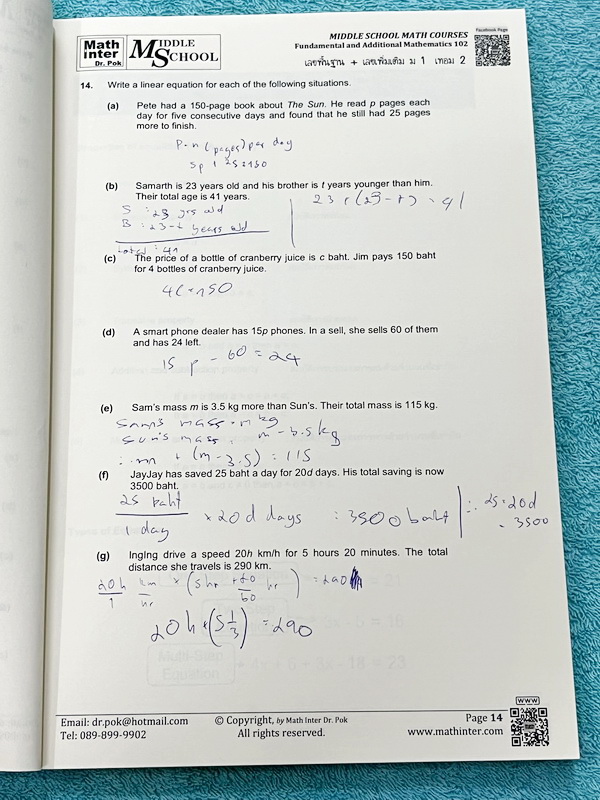 Math
inter
Dr. Pok
MIDDLE
SCHOOL
MIDDLE SCHOOL MATH COURSES
Fundamental and Additional Mathematics 102
เลขพื้นฐาน + เลขเพิ่มเติม ม 1 เทอม 2
Facebook Page
14. Write a linear equation for each of the following situations.
(a) Pete had a 150-page book about The Sun. He read p pages each
day for five consecutive days and found that he still had 25 pages
more to finish.
(pages) per day
(b) Samarth is 23 years old and his brother is t years younger than him.
Their total age is 41 years.
S : 23 yrs old
B : 23-t years old
23 + (23 - t) = 41
(c) The price of a bottle of cranberry juice is c baht. Jim pays 150 baht
for 4 bottles of cranberry juice.
4c = 150
(d) A smart phone dealer has 15p phones. In a sell, she sells 60 of them
and has 24 left.
15 p - 60 = 24
(e) Sam's mass m is 3.5 kg more than Sun's. Their total mass is 115 kg.
Sam's mass = m kg
Sun's mass = m - 3.5 kg
∴ m + (m - 3.5) = 115
(f) JayJay has saved 25 baht a day for 20d days. His total saving is now
3500 baht.
25 baht
1 day
× 20 d days = 3500 baht
∴ 25 × 20d
= 3500
(g) IngIng drive a speed 20h km/h for 5 hours 20 minutes. The total
distance she travels is 290 km.
20h km × (5 hr + 20 hr) = 290
1 hr 60
20 h × (5 1/3) = 290
Multi-Step
Equation
Email: dr.pok@hotmail.com
Tel: 089-899-9902
© Copyright, by Math Inter Dr. Pok
All rights reserved.
Page 14
www.mathinter.com
WWW